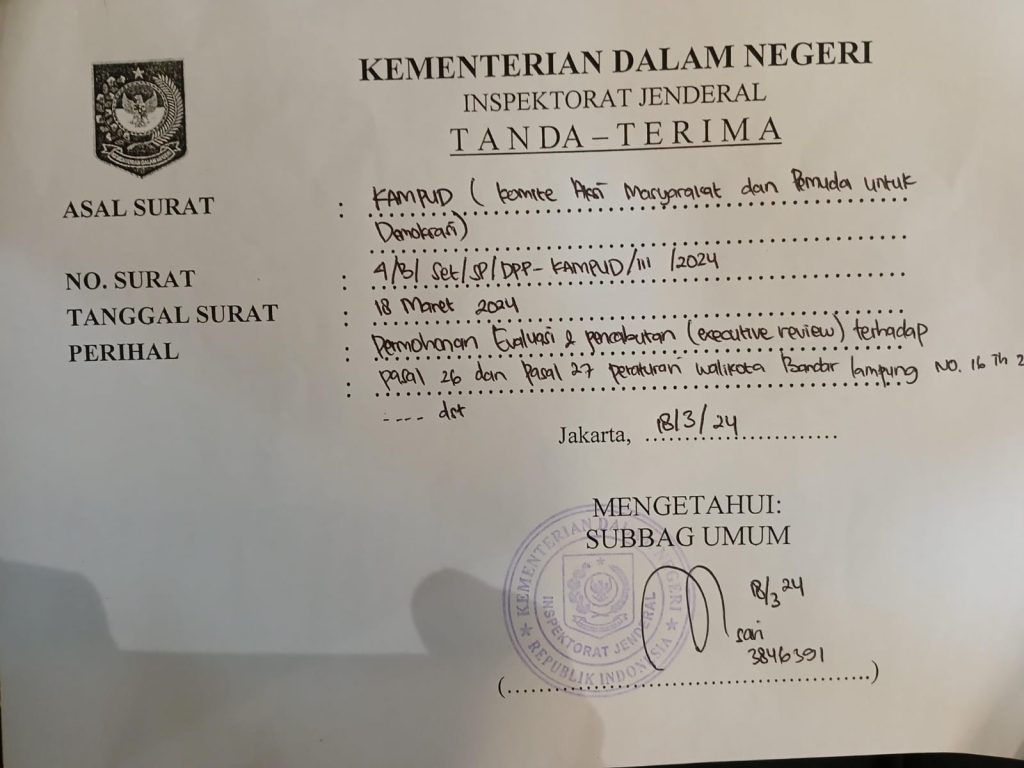 KEMENTERIAN DALAM NEGERI
INSPEKTORAT JENDERAL
TANDA – TERIMA
ASAL SURAT : KAMPUD ( Komite Aksi Masyarakat dan Pemuda untuk
Demokrasi)
NO. SURAT : 4/B/ Set/SP/DPP- KAMPUD/III /2024
TANGGAL SURAT : 18 Maret 2024
PERIHAL : Permohonan Evaluasi & pencabutan (executive review) terhadap
: pasal 26 dan pasal 27 peraturan walikota Bandar lampung NO. 16 Th 2
---- dst
Jakarta, 18/3/24
MENGETAHUI:
SUBBAG UMUM
KEMENTERIAN DALAM NEGERI
INSPEKTORAT JENDERAL
REPUBLIK INDONESIA
18/3 24
sari
3846391
(..............................................)